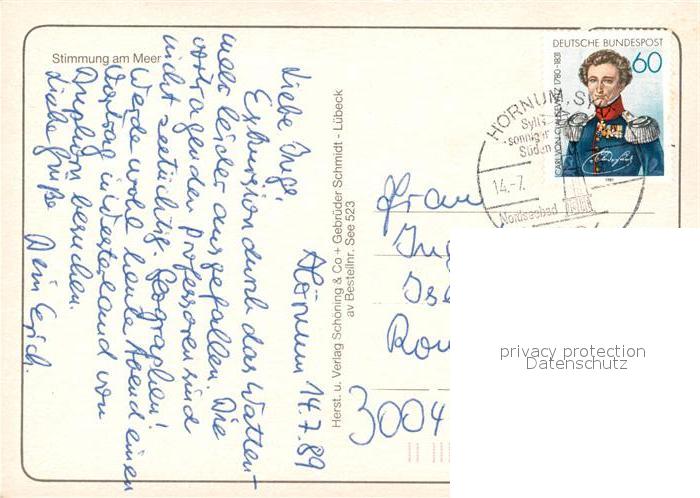 Stimmung am Meer
Hörnum 14.7.89
Liebe Inge,
Exkursion durch das Watten-
meer leider ausgefallen. Die
vortragenden Professoren sind
nicht seetüchtig. Geographen!
Werde wohl heute Abend einen
Vortrag in Westerland von
besuchen.
Liebe Grüße Dein Erich.
Herst. u. Verlag Schöning & Co + Gebrüder Schmidt - Lübeck
av Bestellnr. See 523
DEUTSCHE BUNDESPOST
60
CARL VON CLAUSEWITZ 1780-1831
1981
HÖRNUM, S
Sylt's
sonniger
Süden
14.-7.
Nordseebad
Frau
3004
privacy protection
Datenschutz